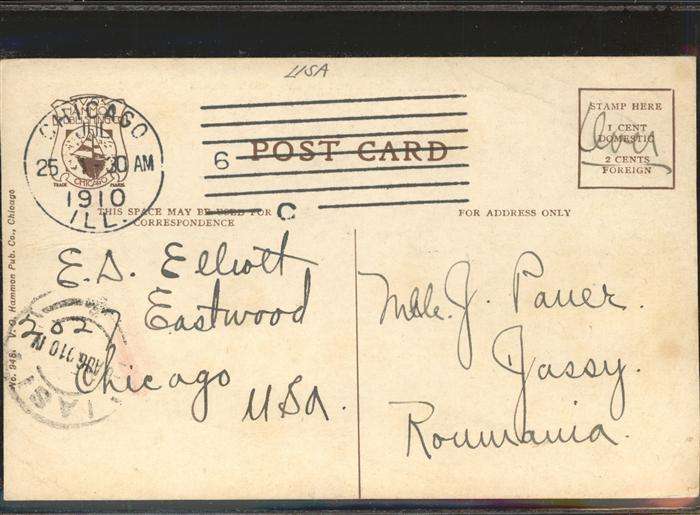 USA
CHICAGO
JUL
25
30 AM
1910
ILL.
V.O. HAMMON
PUBLISHING CO
CHICAGO
TRADE MARK
6
C
POST CARD
STAMP HERE
1 CENT
DOMESTIC
2 CENTS
FOREIGN
THIS SPACE MAY BE USED FOR
CORRESPONDENCE
FOR ADDRESS ONLY
No. 946. V. O. Hammon Pub. Co., Chicago
E.D. Elliott
Eastwood
Chicago
USA.
Mlle. J. Pauer.
Jassy.
Roumania.
AUG 910
IASI